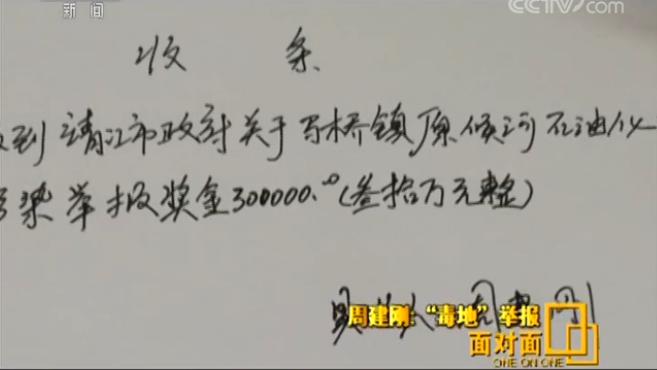 新闻
CCTV.com
收条
到靖江市政府关于马桥镇原侯河石油化
染举报奖金300000.00(叁拾万元整)
周建刚:“毒地”举报
面对面
ONE ON ONE